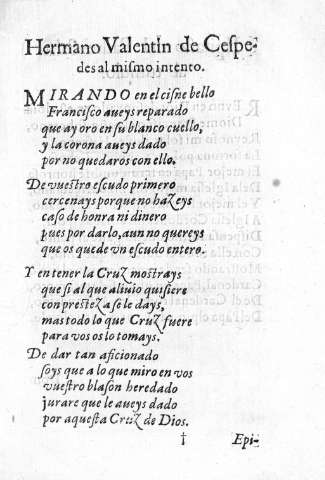 Hermano Valentin de Cespe-
des al mismo intento.
MIRANDO en el cisne bello
Francisco aueys reparado
que ay oro en su blanco cuello,
y la corona aueys dado
por no quedaros con ello.
De vuestro escudo primero
cercenays porque no hazeys
caso de honra ni dinero
pues por darlo, aun no quereys
que os quede vn escudo entero.
Y en tener la Cruz mostrays
que si al que aliuio quisiere
con presteza se le days,
mas todo lo que Cruz fuere
para vos os lo tomays.
De dar tan aficionado
soys que a lo que miro en vos
vuestro blason heredado
jurare que le aueys dado
por aquesta Cruz de Dios.
† Epi-